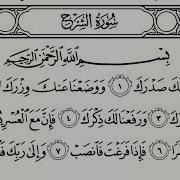 سُورَةُ الشَّرْحِ
بِسْمِ اللَّهِ الرَّحْمَٰنِ الرَّحِيمِ
لَكَ صَدْرَكَ ١ وَوَضَعْنَا عَنكَ وِزْرَكَ
رَكَ ٣ وَرَفَعْنَا لَكَ ذِكْرَكَ ٤ فَإِنَّ مَعَ الْعُسْرِ
رًا ٦ فَإِذَا فَرَغْتَ فَانصَبْ ٧ وَإِلَىٰ رَبِّكَ